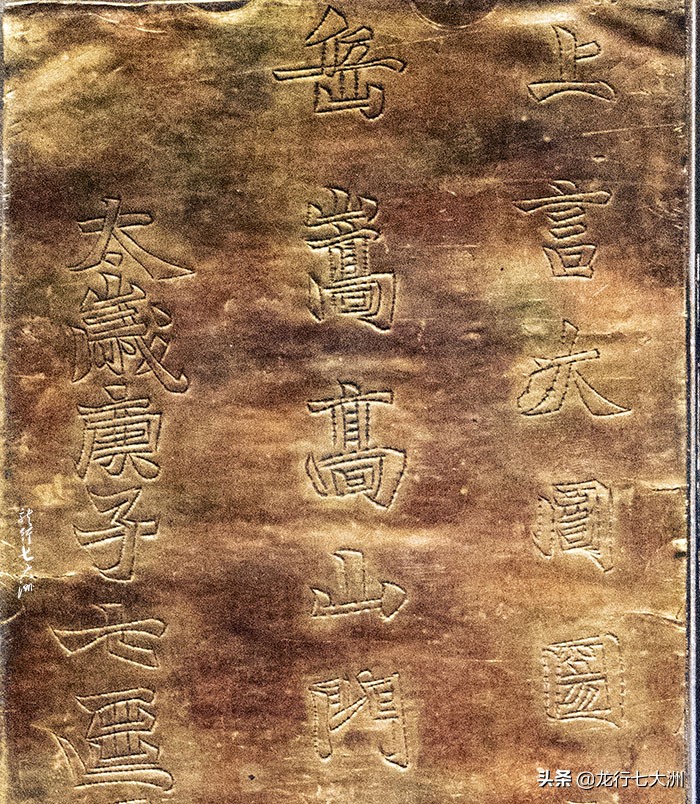 上言大周圀
岳嵩髙山門
太歲庚子七
新行七大洲
头条 @龙行七大洲